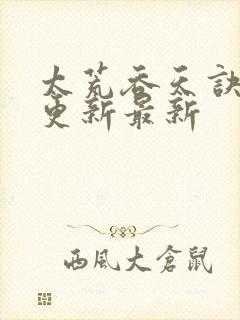 太荒吞天訣
更新最新
西風大倉鼠